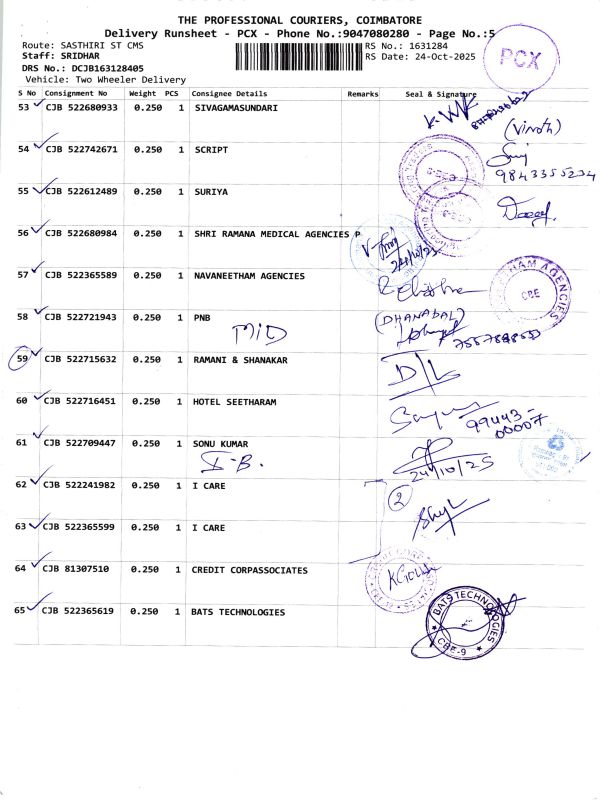 THE PROFESSIONAL COURIERS, COIMBATORE
Delivery Runsheet - PCX - Phone No.:9047080280 - Page No.:5
Route: SASTHIRI ST CMS RS No.: 1631284
Staff: SRIDHAR RS Date: 24-Oct-2025
DRS No.: DCJB163128405
Vehicle: Two Wheeler Delivery
PCX
S No Consignment No Weight PCS Consignee Details Remarks Seal & Signature
53 CJB 522680933 0.250 1 SIVAGAMASUNDARI
(Vinoth)
54 CJB 522742671 0.250 1 SCRIPT
9843355234
55 CJB 522612489 0.250 1 SURIYA
56 CJB 522680984 0.250 1 SHRI RAMANA MEDICAL AGENCIES P
24/10/25
57 CJB 522365589 0.250 1 NAVANEETHAM AGENCIES
CBE
58 CJB 522721943 0.250 1 PNB (DHANAPAL)
MID
59 CJB 522715632 0.250 1 RAMANI & SHANAKAR D/L
60 CJB 522716451 0.250 1 HOTEL SEETHARAM
99443-
00007
61 CJB 522709447 0.250 1 SONU KUMAR
I-B. 24/10/25
62 CJB 522241982 0.250 1 I CARE 2
63 CJB 522365599 0.250 1 I CARE
64 CJB 81307510 0.250 1 CREDIT CORPASSOCIATES
65 CJB 522365619 0.250 1 BATS TECHNOLOGIES
BATS TECHNOLOGIES
CBE-9